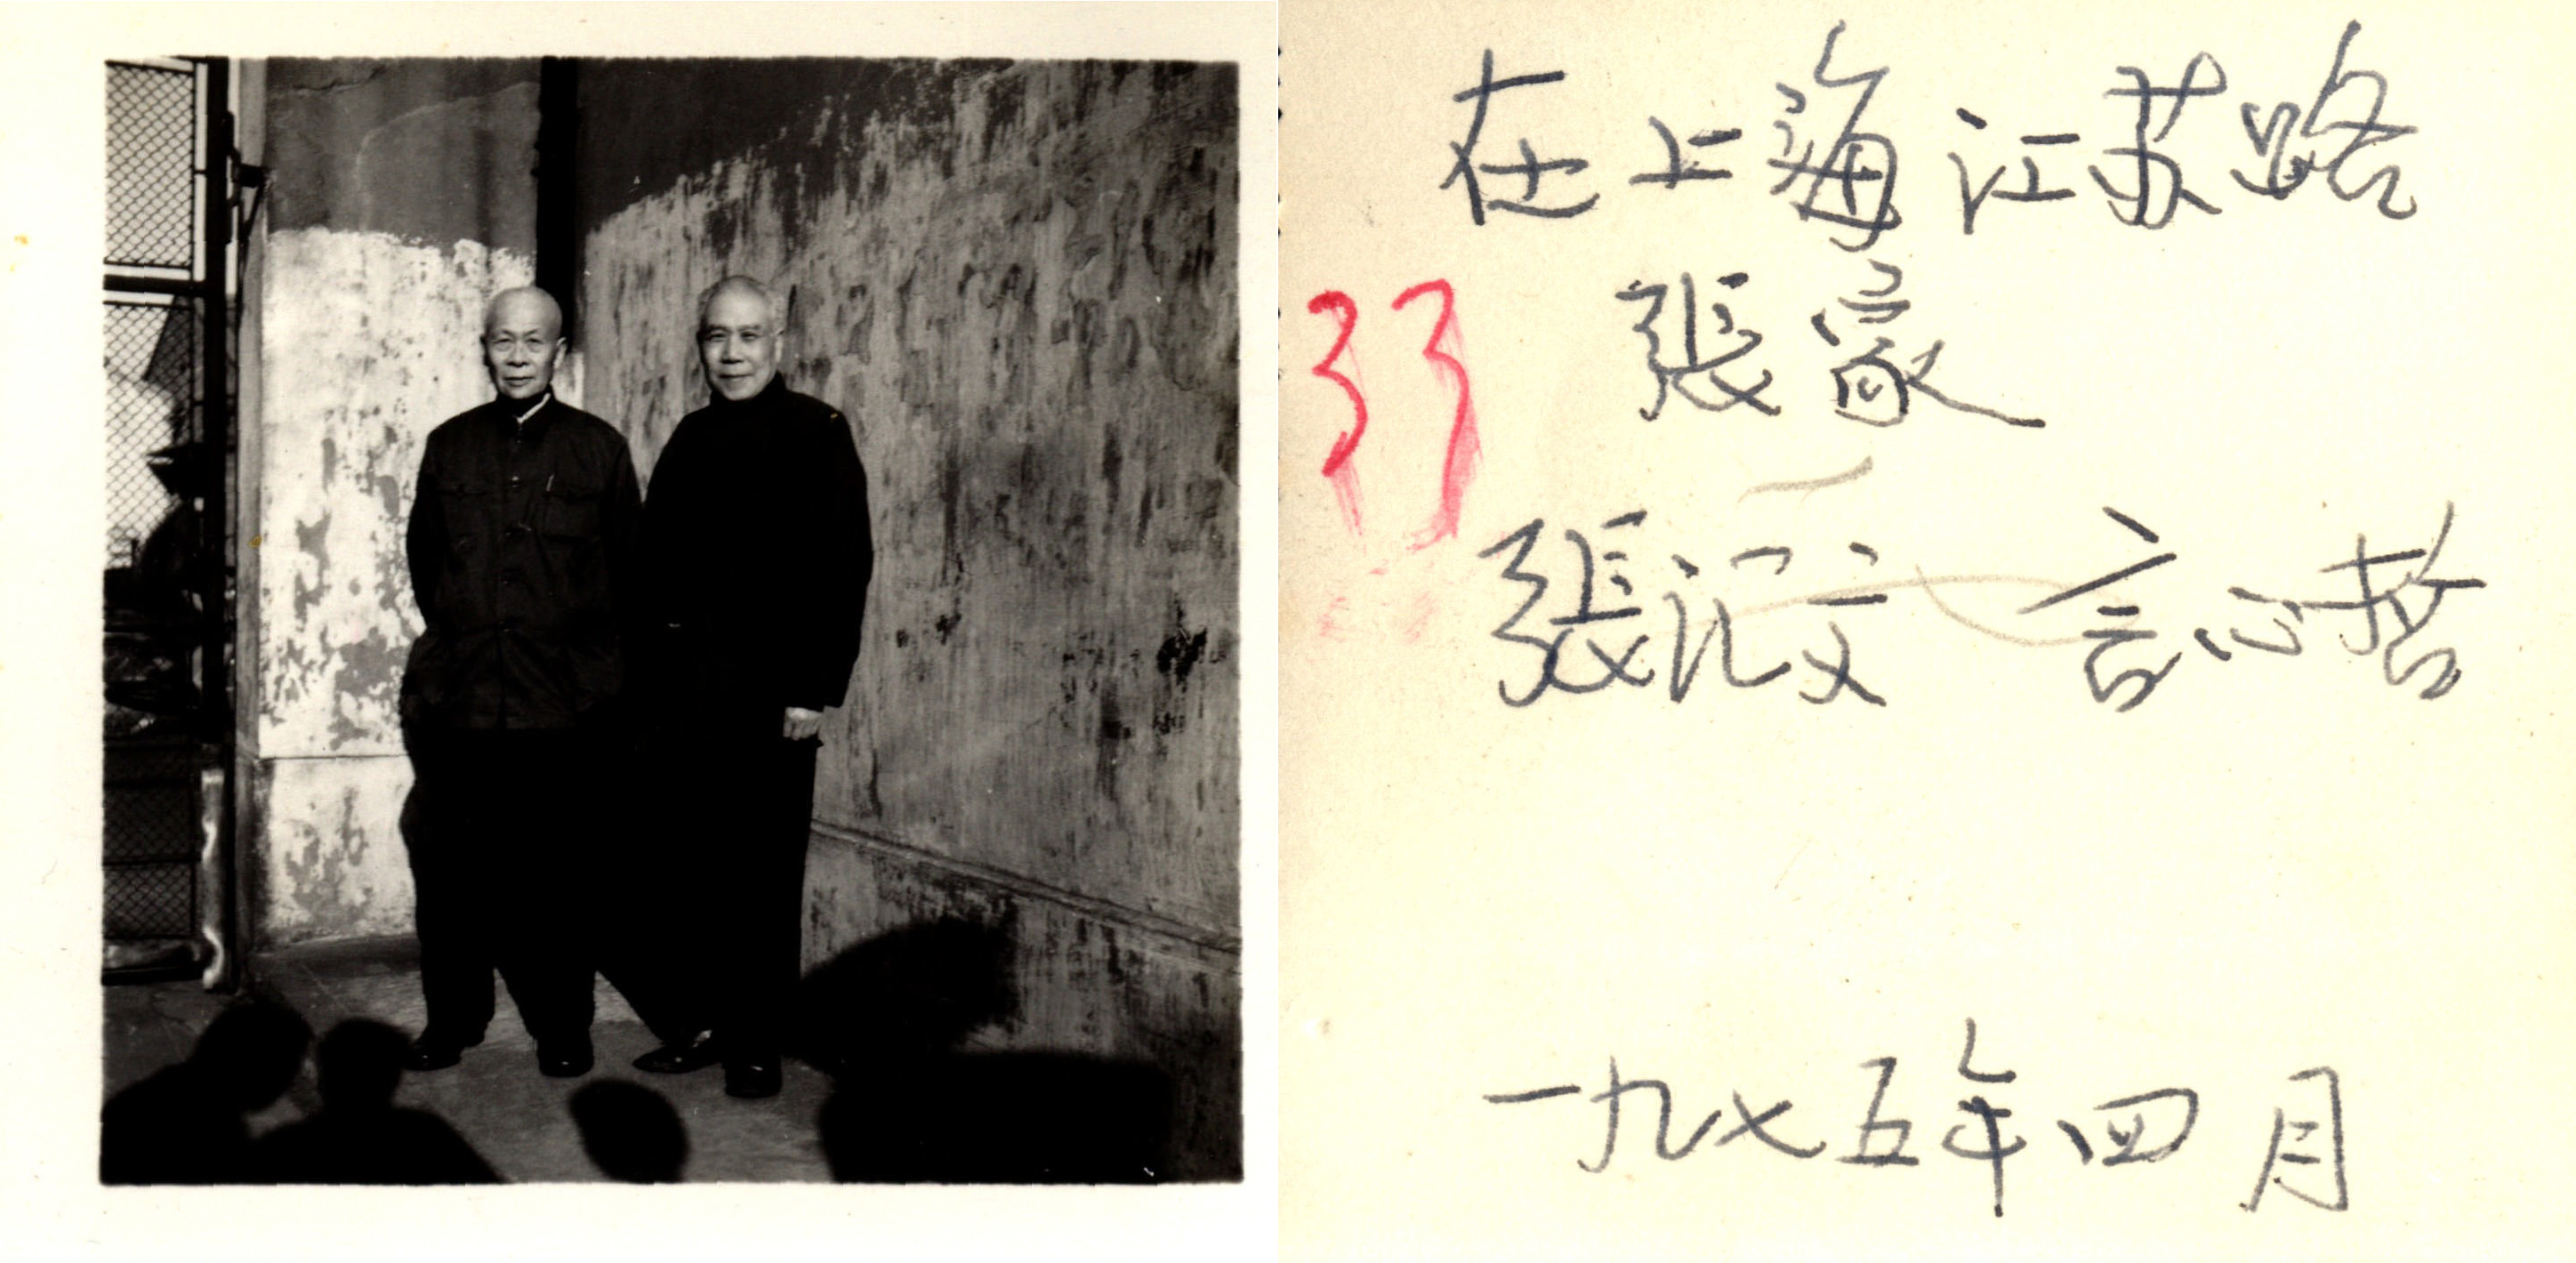 在上海江苏路
33 張家
張汇文 言心哲
一九七五年四月